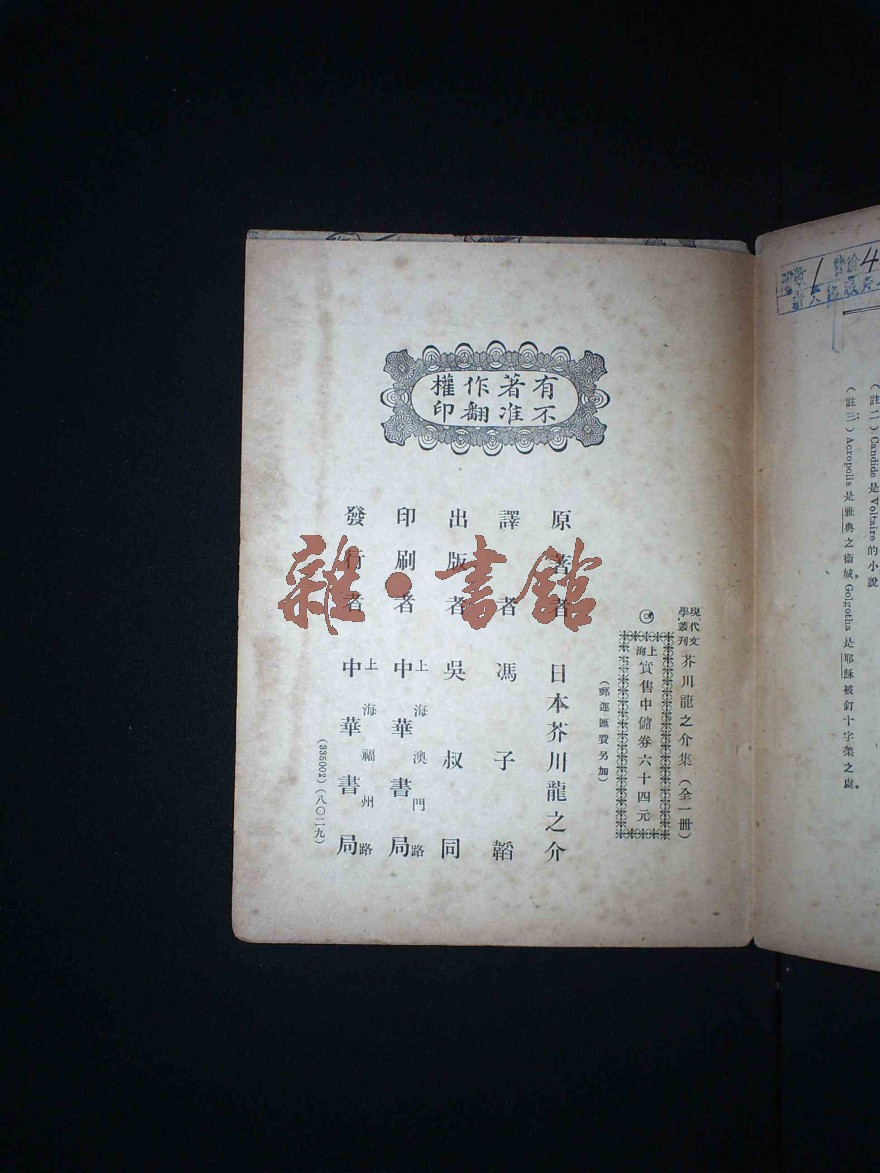 (註二) Candide 是 Voltaire 的小說
(註三) Acropolis 是雅典之衛城。Golgotha 是耶穌被釘十字架之處。
有著作權
不准翻印
現代文學叢刊 芥川龍之介集 (全一冊)
上海實售中儲券六十四元
(郵運匯費另加)
原著者 日本芥川龍之介
譯者 馮子韜
出版者 吳叔同
印刷者 上海澳門路 中華書局
發行者 上海福州路 中華書局
(335002)(八〇二九)
雜·書館